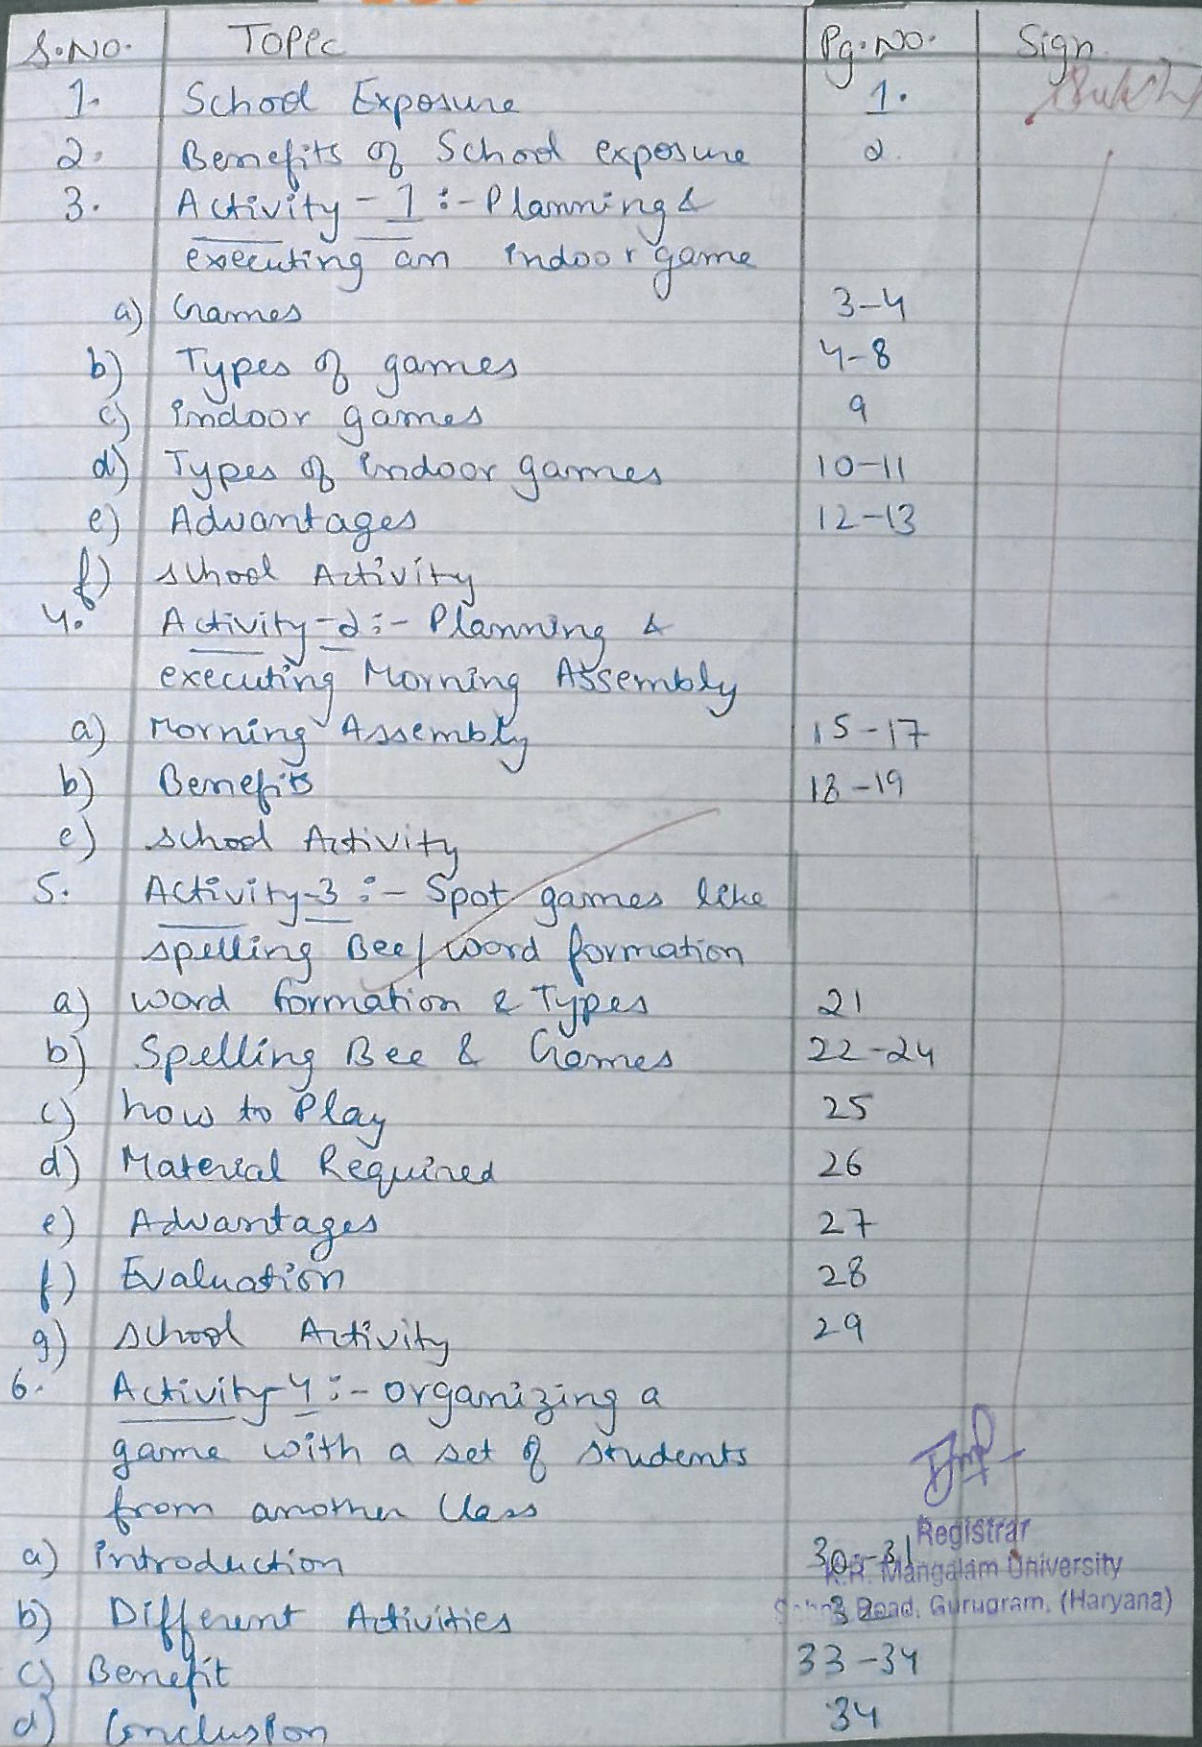 S.No. Topic Pg.No. Sign.
1. School Exposure 1.
2. Benefits of School exposure 2.
3. Activity-1 :- Planning &
executing an indoor game
a) Games 3-4
b) Types of games 4-8
c) indoor games 9
d) Types of indoor games 10-11
e) Advantages 12-13
f) school Activity
4. Activity-2 :- Planning &
executing Morning Assembly
a) Morning Assembly 15-17
b) Benefits 18-19
c) school Activity
5. Activity-3 :- Spot games like
spelling Bee/word formation
a) word formation & Types 21
b) Spelling Bee & Games 22-24
c) how to Play 25
d) Material Required 26
e) Advantages 27
f) Evaluation 28
g) school Activity 29
6. Activity-4 :- organizing a
game with a set of students
from another class
Registrar
a) introduction 30-31
K.R. Mangalam University
b) Different Activities 32
Road, Gurugram, (Haryana)
c) Benefit 33-34
d) Conclusion 34